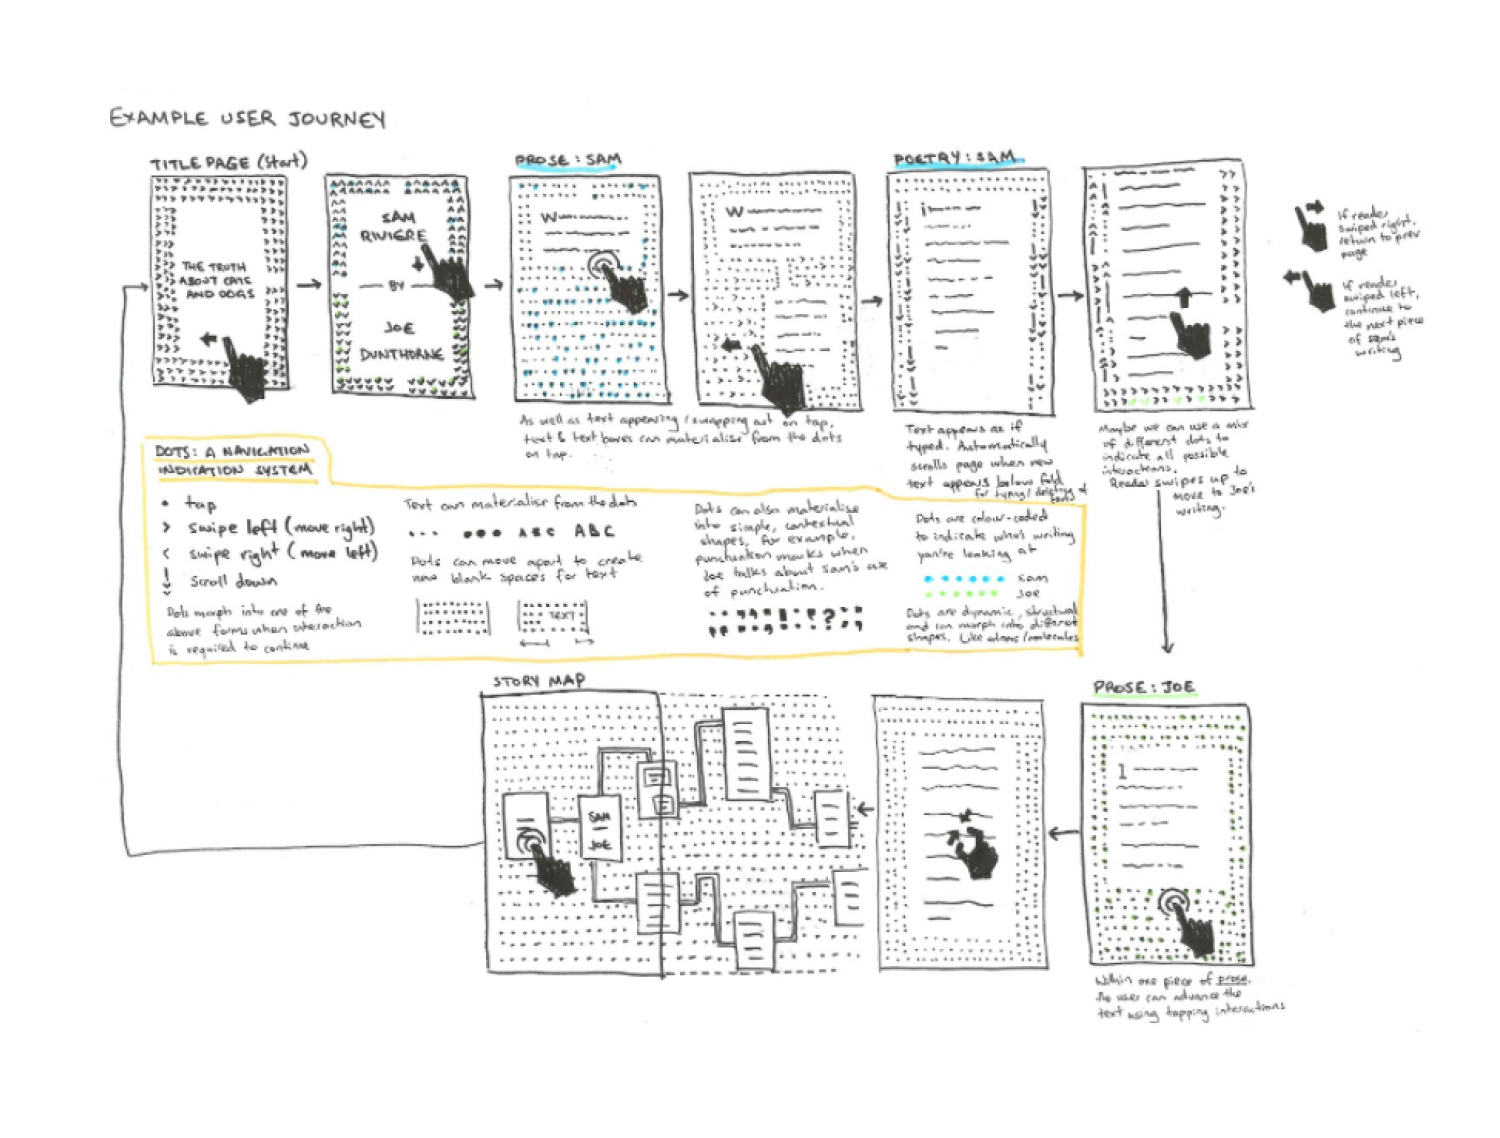 EXAMPLE USER JOURNEY
TITLE PAGE (Start)
THE TRUTH
ABOUT CATS
AND DOGS
SAM
RIVIERE
BY
JOE
DUNTHORNE
PROSE: SAM
W
As well as text appearing / swapping out on tap,
text & text boxes can materialise from the dots
on tap.
W
POETRY: SAM
i
Text appears as if
typed. Automatically
scrolls page when new
text appears below fold
for typing / deleting of
Maybe we can use a mix
of different dots to
indicate all possible
interactions.
Reader swipes up to
move to Joe's
writing.
If reader
swiped right,
return to prev
page
If reader
swiped left,
continue to
the next piece
of Sam's
writing
DOTS: A NAVIGATION
INDICATION SYSTEM
• tap
> swipe left (move right)
< swipe right (move left)
scroll down
Dots morph into one of the
above forms when interaction
is required to continue
Text can materialise from the dots
ABC ABC
Dots can move apart to create
new blank spaces for text
TEXT
Dots can also materialise
into simple, contextual
shapes, for example,
punctuation marks when
Joe talks about Sam's use
of punctuation.
Dots are colour-coded
to indicate who's writing
you're looking at
Sam
Joe
Dots are dynamic, structural
and can morph into different
shapes. Like atoms/molecules
STORY MAP
SAM
JOE
PROSE: JOE
I
Within one piece of prose,
the user can advance the
text using tapping interactions